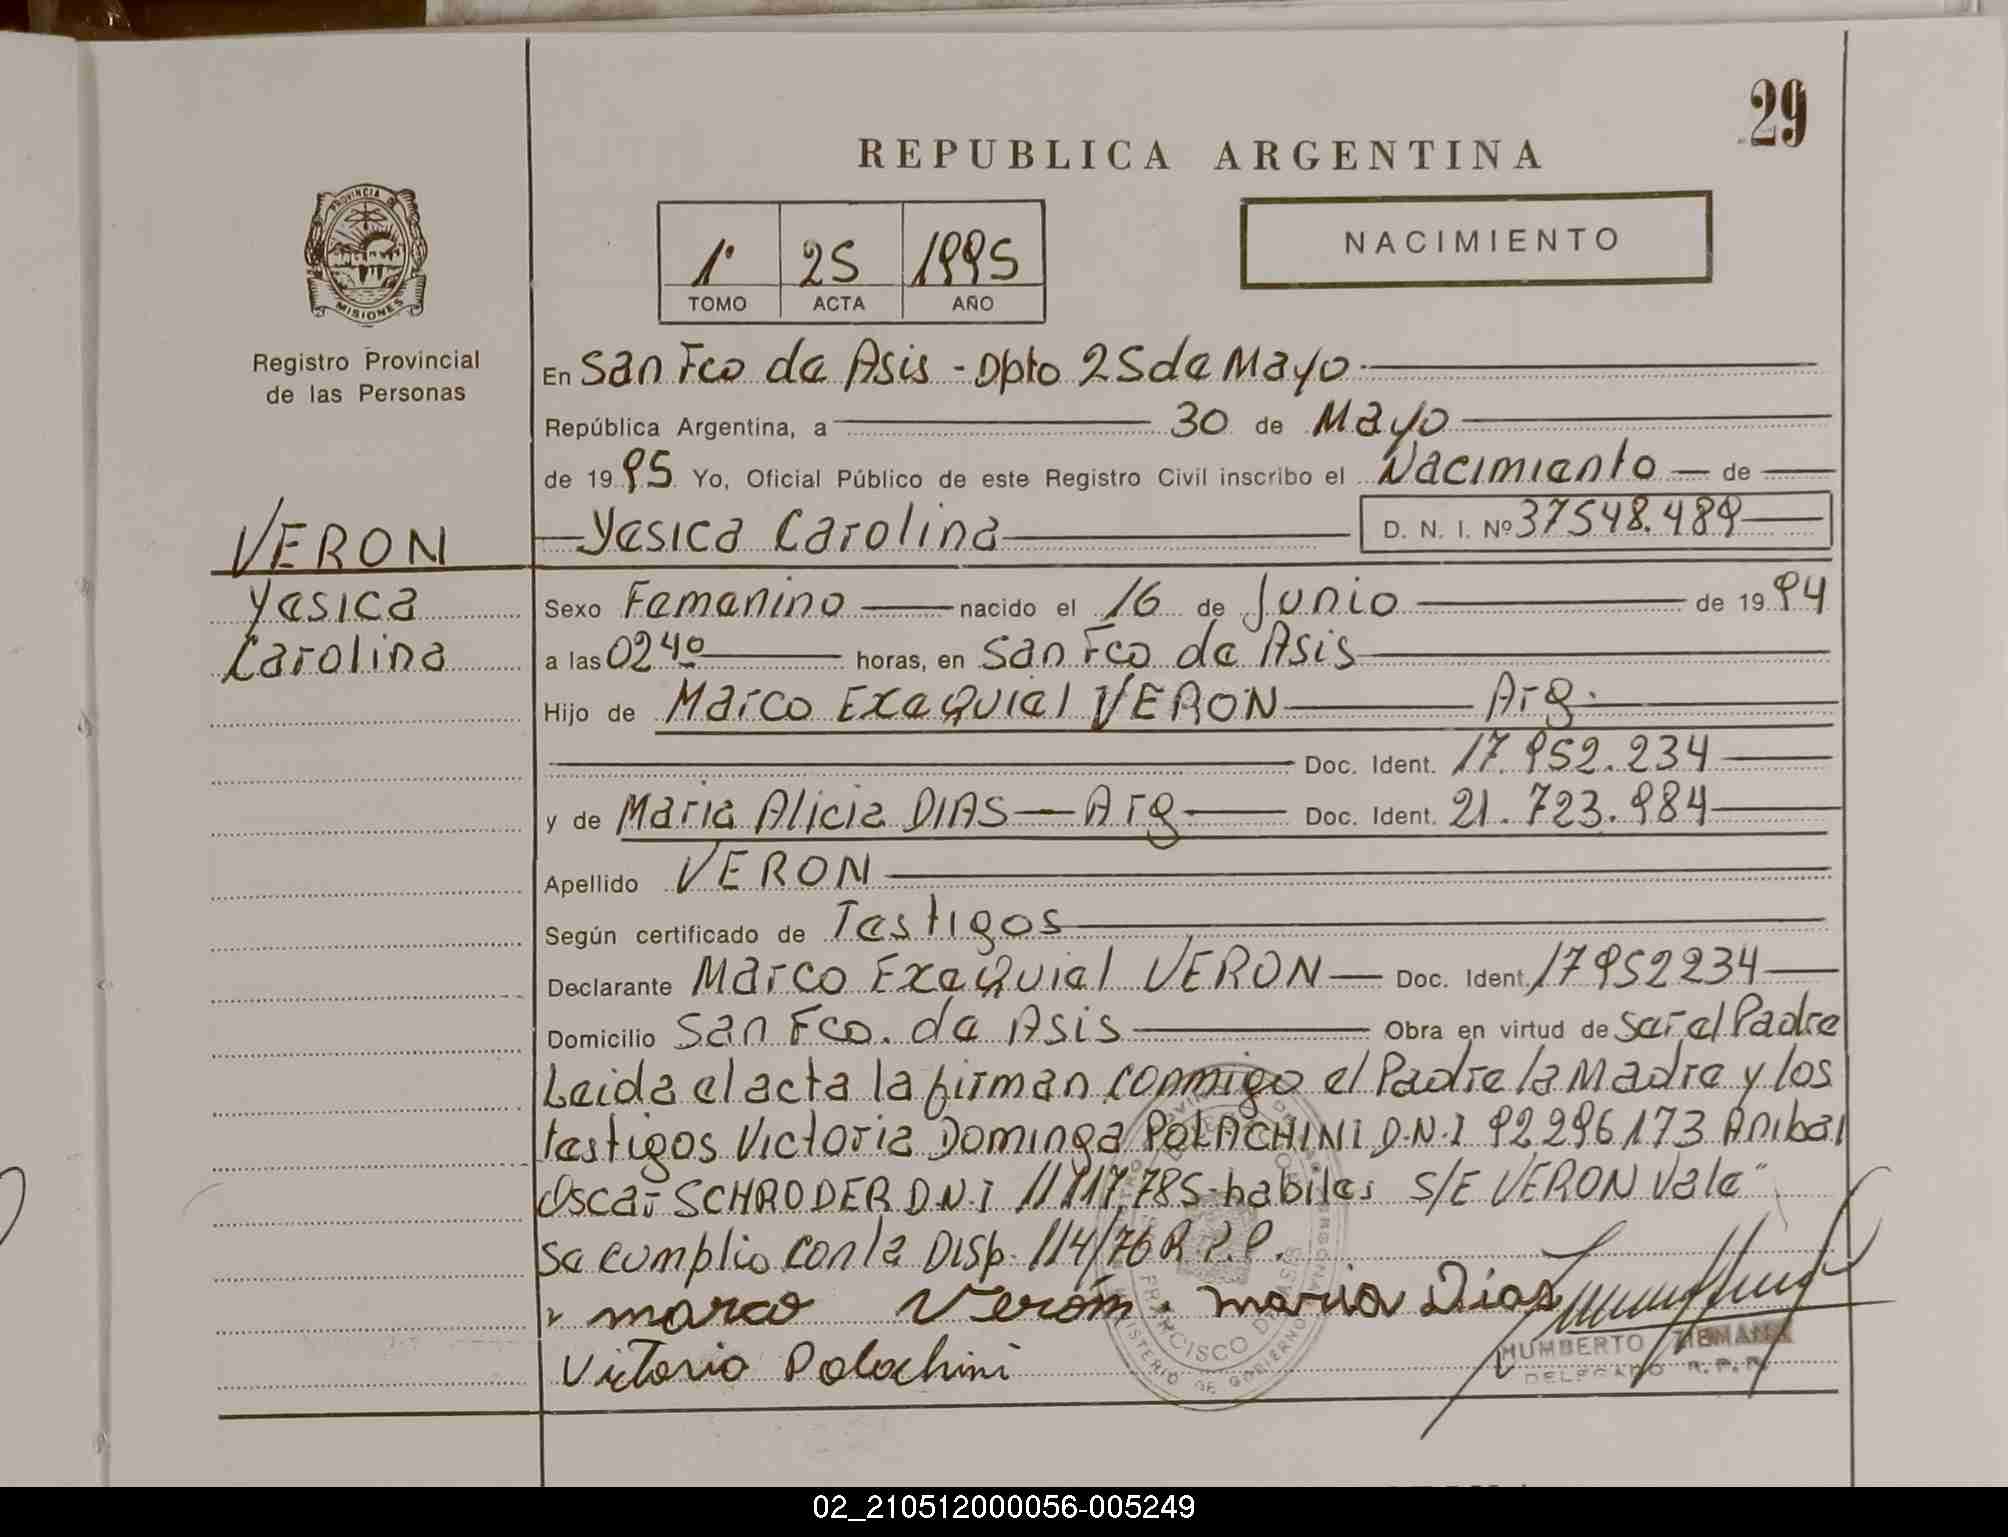 29
REPUBLICA ARGENTINA
PROVINCIA DE
MISIONES
1º 25 1995
TOMO ACTA AÑO
NACIMIENTO
Registro Provincial
de las Personas
En San Fco de Asis - Dpto 25 de Mayo
República Argentina, a 30 de Mayo
de 1995 Yo, Oficial Público de este Registro Civil inscribo el Nacimiento de
Yesica Carolina D. N. I. Nº 37548.489
VERON
Yesica
Carolina
Sexo Femenino nacido el 16 de Junio de 1994
a las 02 40 horas, en San Fco de Asis
Hijo de Marco Exequiel VERON Arg.
Doc. Ident. 17.952.234
y de Maria Alicia DIAS — Arg Doc. Ident. 21.723.984
Apellido VERON
Según certificado de Testigos
Declarante Marco Exequiel VERON Doc. Ident. 17952234
Domicilio San Fco. de Asis Obra en virtud de Ser el Padre
Leida el acta la firman conmigo el Padre la Madre y los
testigos Victoria Dominga POLACHINI D.N.I 92296173 Anibal
Oscar SCHRODER D.N.I 11117.785 habiles S/E VERON Vale"
Se cumplio con la Disp. 114/76 R.P.P.
marco Verón. maria Dias
Victorio Polachini
HUMBERTO
DELEGADO R.P.P.
FRANCISCO DE ASIS
MINISTERIO DE GOBIERNO
02_210512000056-005249